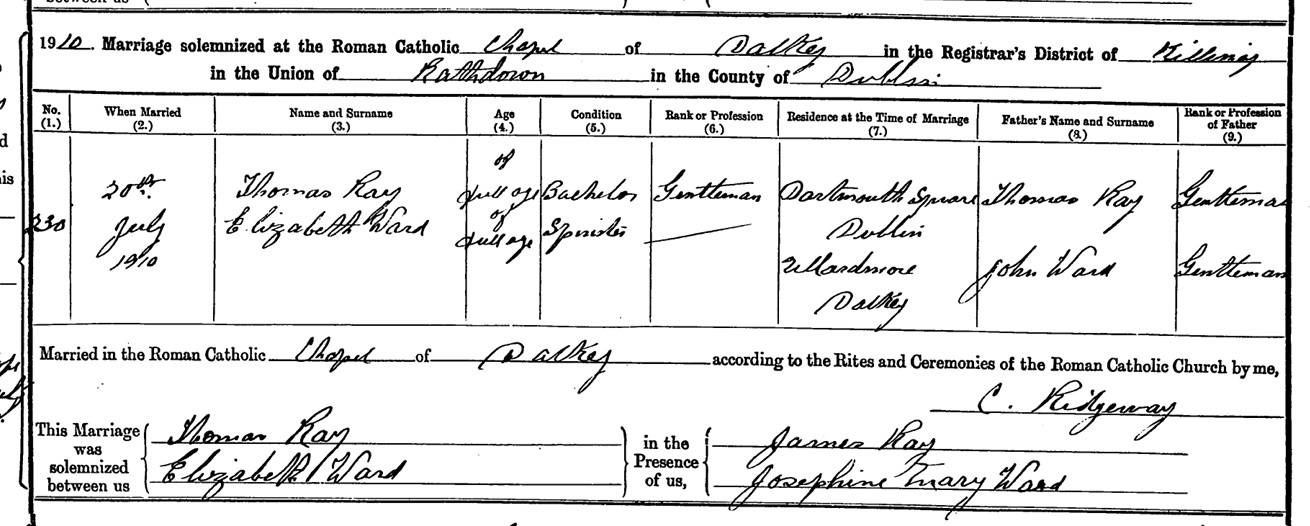 between us
1910. Marriage solemnized at the Roman Catholic Chapel of Dalkey in the Registrar's District of Killiney
in the Union of Rathdown in the County of Dublin
No. (1.) When Married (2.) Name and Surname (3.) Age (4.) Condition (5.) Rank or Profession (6.) Residence at the Time of Marriage (7.) Father's Name and Surname (8.) Rank or Profession of Father (9.)
230
20th July 1910
Thomas Ray of full age Bachelor Gentleman Dartmouth Square Dublin Thomas Ray Gentleman
Elizabeth Ward of full age Spinster Dalkey John Ward Gentleman
Married in the Roman Catholic Chapel of Dalkey according to the Rites and Ceremonies of the Roman Catholic Church by me,
C. Ridgeway
This Marriage was solemnized between us
Thomas Ray
Elizabeth Ward
in the Presence of us,
James Ray
Josephine Mary Ward